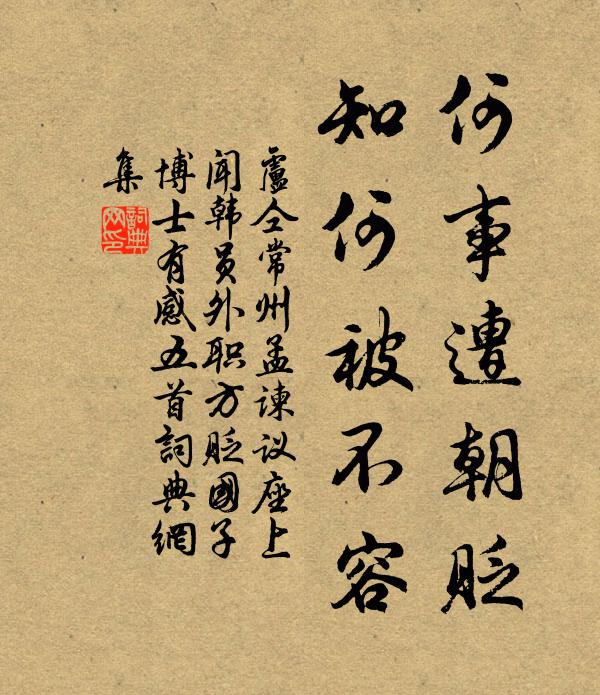 何事遭朝貶
知何被不容
盧仝常州孟谏议座上
闻韩员外职方貶國子
博士有感五首詞典網
集
詞典
网印